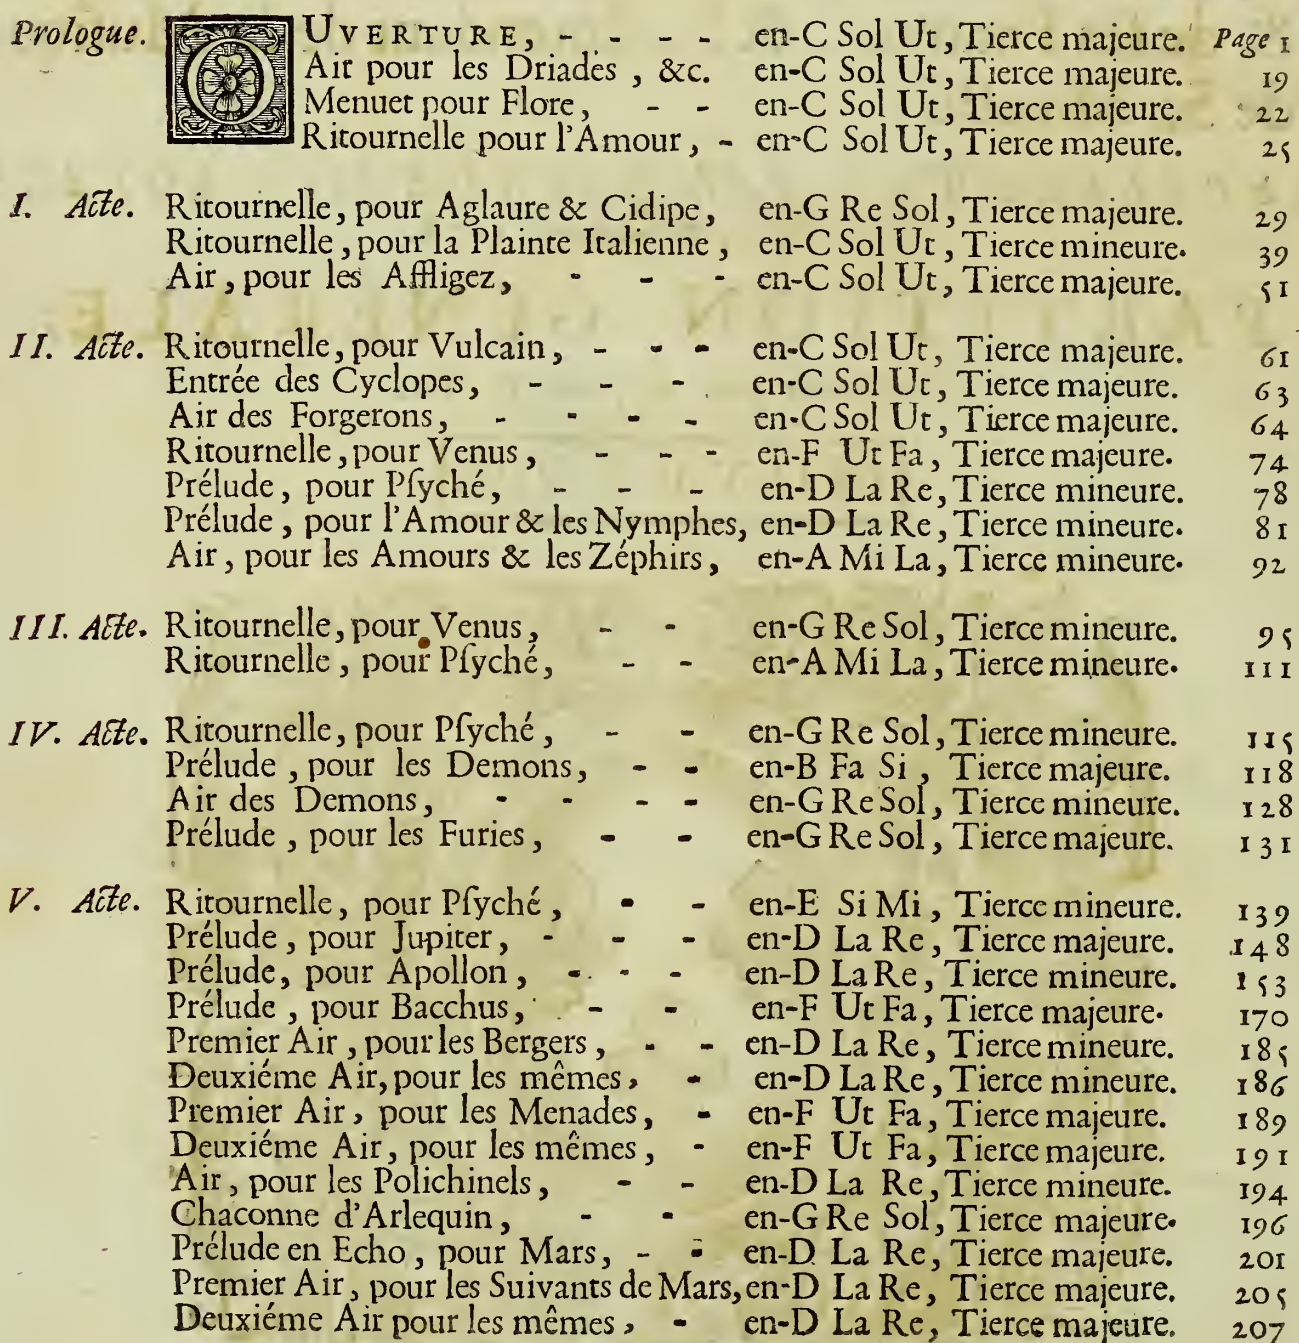 Prologue. OUVERTURE, - - - - en-C Sol Ut, Tierce majeure. Page 1
Air pour les Driades, &c. en-C Sol Ut, Tierce majeure. 19
Menuet pour Flore, - - en-C Sol Ut, Tierce majeure. 22
Ritournelle pour l'Amour, - en-C Sol Ut, Tierce majeure. 25
I. Acte. Ritournelle, pour Aglaure & Cidipe, en-G Re Sol, Tierce majeure. 29
Ritournelle, pour la Plainte Italienne, en-C Sol Ut, Tierce mineure. 39
Air, pour les Affligez, - - - en-C Sol Ut, Tierce majeure. 51
II. Acte. Ritournelle, pour Vulcain, - - - en-C Sol Ut, Tierce majeure. 61
Entrée des Cyclopes, - - - en-C Sol Ut, Tierce majeure. 63
Air des Forgerons, - - - - en-C Sol Ut, Tierce majeure. 64
Ritournelle, pour Venus, - - - en-F Ut Fa, Tierce majeure. 74
Prélude, pour Pſyché, - - - en-D La Re, Tierce mineure. 78
Prélude, pour l'Amour & les Nymphes, en-D La Re, Tierce mineure. 81
Air, pour les Amours & les Zéphirs, en-A Mi La, Tierce mineure. 92
III. Acte. Ritournelle, pour Venus, - - en-G Re Sol, Tierce mineure. 95
Ritournelle, pour Pſyché, - - en-A Mi La, Tierce mineure. 111
IV. Acte. Ritournelle, pour Pſyché, - - en-G Re Sol, Tierce mineure. 115
Prélude, pour les Demons, - - en-B Fa Si, Tierce majeure. 118
Air des Demons, - - - - en-G Re Sol, Tierce mineure. 128
Prélude, pour les Furies, - - en-G Re Sol, Tierce majeure. 131
V. Acte. Ritournelle, pour Pſyché, - - en-E Si Mi, Tierce mineure. 139
Prélude, pour Jupiter, - - - en-D La Re, Tierce majeure. 148
Prélude, pour Apollon, - - - en-D La Re, Tierce mineure. 153
Prélude, pour Bacchus, - - en-F Ut Fa, Tierce majeure. 170
Premier Air, pour les Bergers, - - en-D La Re, Tierce mineure. 185
Deuxiéme Air, pour les mêmes, - en-D La Re, Tierce mineure. 186
Premier Air, pour les Menades, - en-F Ut Fa, Tierce majeure. 189
Deuxiéme Air, pour les mêmes, - en-F Ut Fa, Tierce majeure. 191
Air, pour les Polichinels, - - en-D La Re, Tierce mineure. 194
Chaconne d'Arlequin, - - en-G Re Sol, Tierce majeure. 196
Prélude en Echo, pour Mars, - - en-D La Re, Tierce majeure. 201
Premier Air, pour les Suivants de Mars, en-D La Re, Tierce majeure. 205
Deuxiéme Air pour les mêmes, - en-D La Re, Tierce majeure. 207